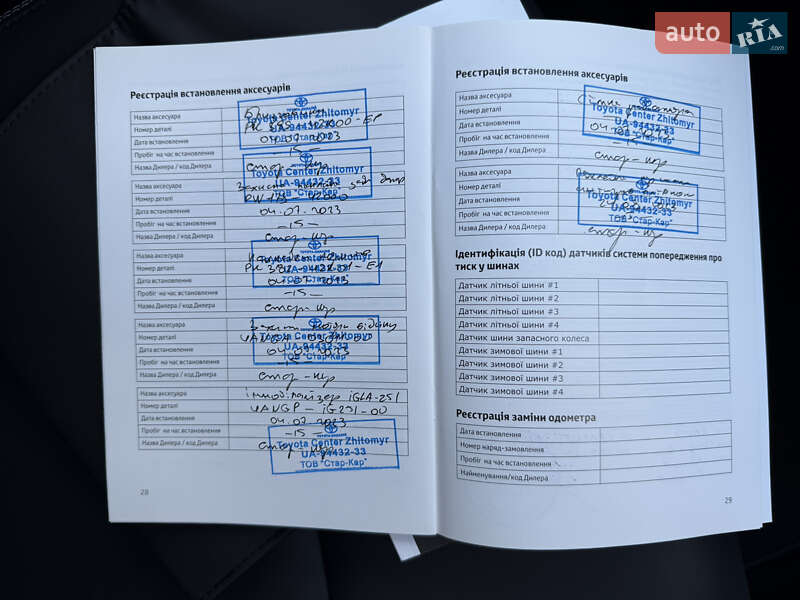 auto RIA .com
Реєстрація встановлення аксесуарів
Назва аксесуара
Номер деталі
Дата встановлення 04.07.2023
Пробіг на час встановлення -15-
Назва Дилера / код Дилера Стар-Кар
Toyota Center Zhitomyr
UA-94432-33
ТОВ "Стар-Кар"
Назва аксесуара Захист
Номер деталі
Дата встановлення 04.07.2023
Пробіг на час встановлення -15-
Назва Дилера / код Дилера Стар-Кар
Toyota Center Zhitomyr
UA-94432-33
ТОВ "Стар-Кар"
Назва аксесуара
Номер деталі
Дата встановлення 04.07.2023
Пробіг на час встановлення -15-
Назва Дилера / код Дилера Стар-Кар
Toyota Center Zhitomyr
UA-94432-33
ТОВ "Стар-Кар"
Назва аксесуара Захист
Номер деталі
Дата встановлення 04.07.2023
Пробіг на час встановлення -15-
Назва Дилера / код Дилера Стар-Кар
Toyota Center Zhitomyr
UA-94432-33
ТОВ "Стар-Кар"
Назва аксесуара іммобілайзер IGLA-251
Номер деталі UAVGP-IG251-00
Дата встановлення 04.07.2023
Пробіг на час встановлення -15-
Назва Дилера / код Дилера Стар-Кар
Toyota Center Zhitomyr
UA-94432-33
ТОВ "Стар-Кар"
28
Реєстрація встановлення аксесуарів
Назва аксесуара
Номер деталі
Дата встановлення
Пробіг на час встановлення -15-
Назва Дилера / код Дилера Стар-Кар
Toyota Center Zhitomyr
UA-94432-33
ТОВ "Стар-Кар"
Назва аксесуара
Номер деталі
Дата встановлення
Пробіг на час встановлення -15-
Назва Дилера / код Дилера Стар-Кар
Toyota Center Zhitomyr
UA-94432-33
ТОВ "Стар-Кар"
Ідентифікація (ID код) датчиків системи попередження про
тиск у шинах
Датчик літньої шини #1
Датчик літньої шини #2
Датчик літньої шини #3
Датчик літньої шини #4
Датчик шини запасного колеса
Датчик зимової шини #1
Датчик зимової шини #2
Датчик зимової шини #3
Датчик зимової шини #4
Реєстрація заміни одометра
Дата встановлення
Номер наряд-замовлення
Пробіг на час встановлення
Найменування/код Дилера
29